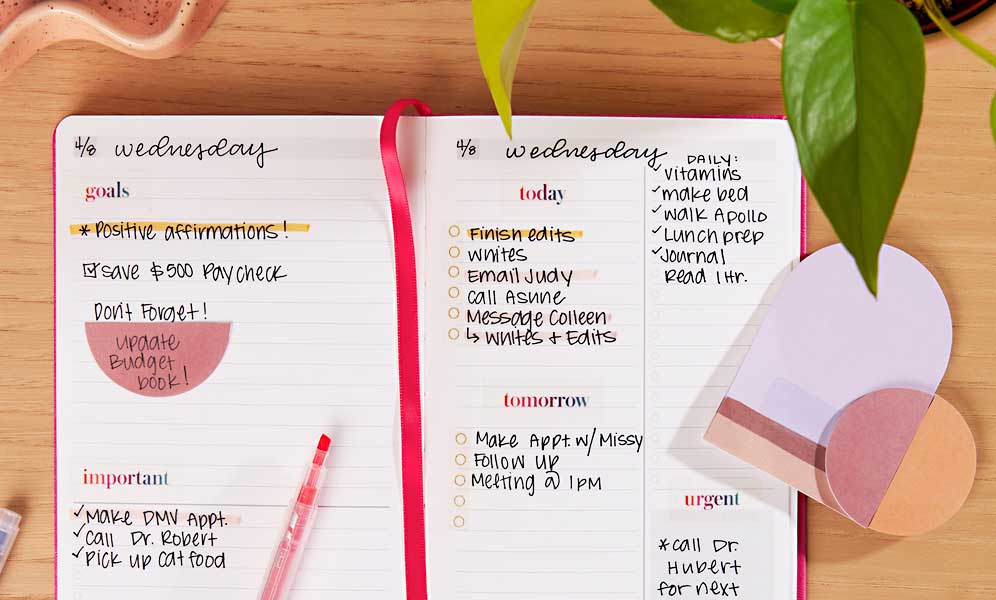 4/8 wednesday
goals
* Positive affirmations!
☑ save $500 Paycheck
Don't Forget!
update
Budget
book!
important
✓Make DMV Appt.
✓Call Dr. Robert
✓Pick up Cat food
4/8 wednesday
today
Finish edits
Whites
Email Judy
Call Asune
Message Colleen
↳ Whites + Edits
tomorrow
Make Appt w/Missy
Follow Up
Meeting @ 1PM
DAILY:
✓Vitamins
✓make bed
✓walk Apollo
✓Lunch prep
✓Journal
Read 1 Hr.
urgent
*call Dr.
Hubert
for next